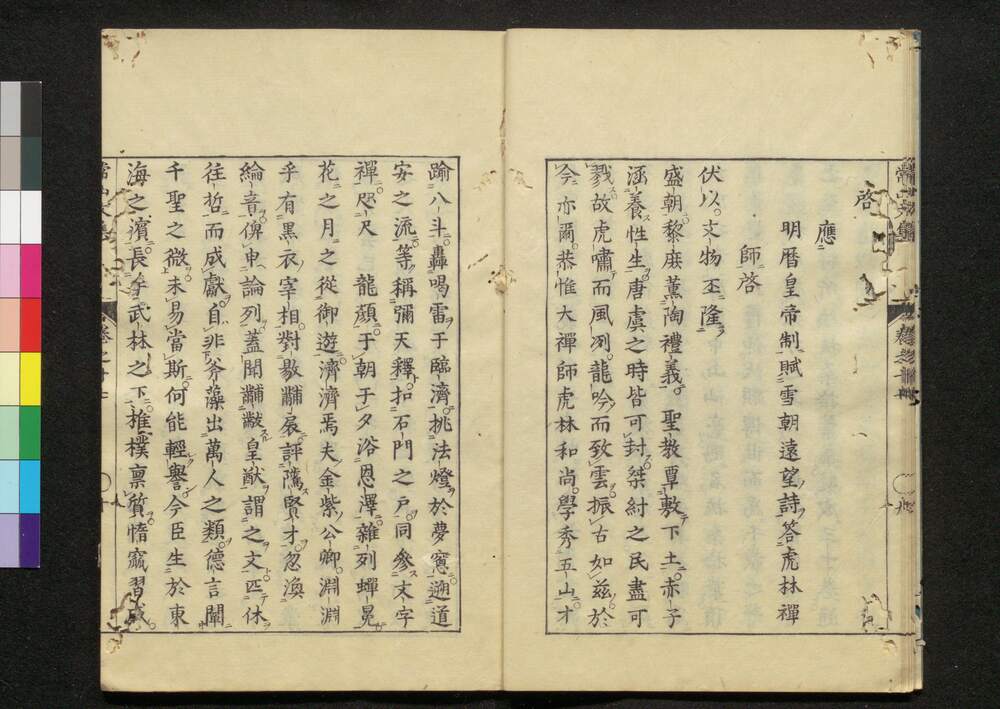 啓
應
明暦皇帝制賦雪朝遠望詩答虎林禪
師啓
伏以文物丕隆
盛朝黎庶薫陶禮義聖教覃敷下土赤子
涵養性生唐虞之時皆可封桀紂之民盡可
戮故虎嘯而風冽龍吟而致雲振古如茲於
今亦爾恭惟大禪師虎林和尚學秀五山才
踰八斗轟喝雷于臨濟挑法燈於夢窓遡道
安之流等稱彌天釋扣石門之戸同參文字
禪咫尺龍顔于朝于夕浴恩澤雜列蟬冕
花之月之從御遊濟濟焉夫金紫公卿淵淵
乎有黒衣宰相對敭黼扆評隲賢才忽渙
綸音俾申論列蓋聞黼黻皇猷謂之文匹休
往哲而成獻自非斧藻出萬人之類德言闡
千聖之微未易當斯何能輕擧今臣生於東
海之濱長
武林之下樸禀質惰窳習成